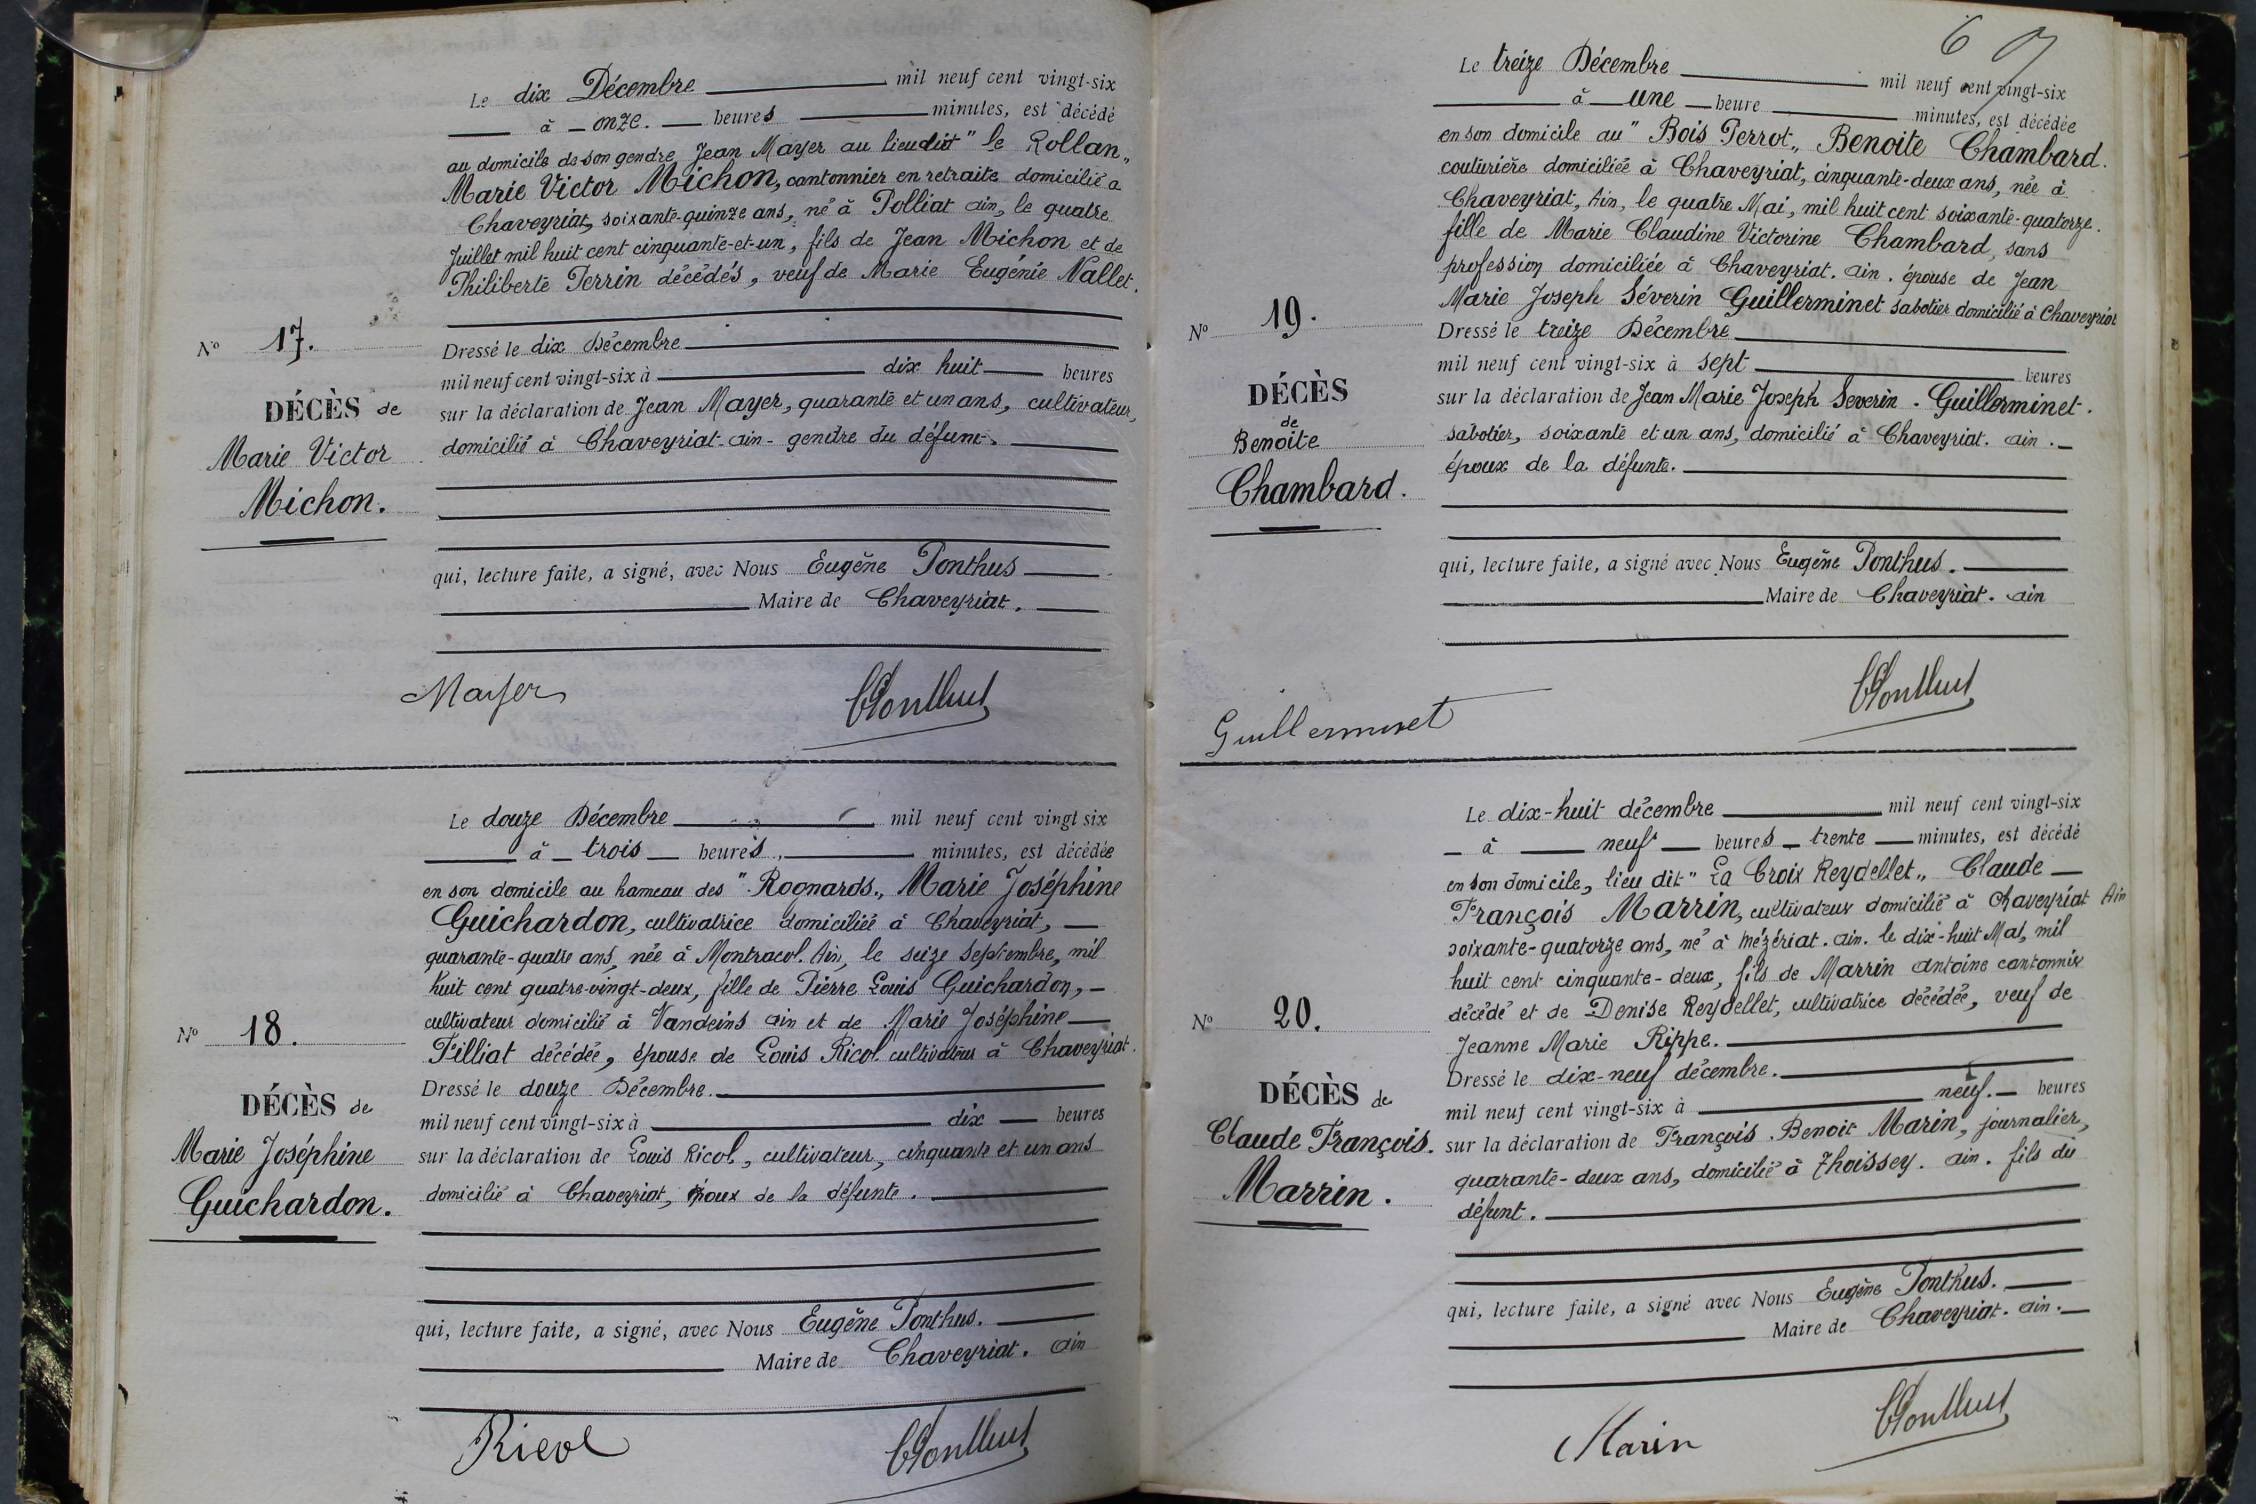 Le dix Décembre mil neuf cent vingt-six
à onze. heures minutes, est décédé
au domicile de son gendre Jean Mayer au lieudit " le Rollan „
Marie Victor Michon, cantonnier en retraite domicilié à
Chaveyriat, soixante-quinze ans, né à Polliat Ain, le quatre
Juillet mil huit cent cinquante-et-un, fils de Jean Michon et de
Philiberte Perrin décédés, veuf de Marie Eugénie Nallet.
N° 17.
DÉCÈS de
Marie Victor
Michon.
Dressé le dix Décembre
mil neuf cent vingt-six à dix huit heures
sur la déclaration de Jean Mayer, quarante et un ans, cultivateur,
domicilié à Chaveyriat-Ain- gendre du défunt.
qui, lecture faite, a signé, avec Nous Eugène Ponthus
Maire de Chaveyriat.
Mayer
EPonthus
Le douze Décembre mil neuf cent vingt six
à trois heures, minutes, est décédée
en son domicile au hameau des " Rognards „ Marie Joséphine
Guichardon, cultivatrice domiciliée à Chaveyriat,
quarante-quatre ans, née à Montracol. Ain, le seize septembre, mil
huit cent quatre-vingt-deux, fille de Pierre Louis Guichardon,
cultivateur domicilié à Vandeins Ain et de Marie Joséphine
Pilliat décédée, épouse de Louis Ricol cultivateur à Chaveyriat.
N° 18.
DÉCÈS de
Marie Joséphine
Guichardon.
Dressé le douze Décembre.
mil neuf cent vingt-six à dix heures
sur la déclaration de Louis Ricol, cultivateur, cinquante et un ans
domicilié à Chaveyriat, époux de la défunte.
qui, lecture faite, a signé, avec Nous Eugène Ponthus.
Maire de Chaveyriat. Ain
Ricol
EPonthus
6
Le treize Décembre mil neuf cent vingt-six
à une heure minutes, est décédée
en son domicile au " Bois Perrot „ Benoite Chambard.
couturière domiciliée à Chaveyriat, cinquante-deux ans, née à
Chaveyriat, Ain, le quatre Mai, mil huit cent soixante-quatorze.
fille de Marie Claudine Victorine Chambard, sans
profession domiciliée à Chaveyriat. Ain. épouse de Jean
Marie Joseph Séverin Guillerminet sabotier domicilié à Chaveyriat
N° 19.
DÉCÈS
de
Benoite
Chambard.
Dressé le treize Décembre
mil neuf cent vingt-six à sept heures
sur la déclaration de Jean Marie Joseph Severin. Guillerminet.
sabotier, soixante et un ans, domicilié à Chaveyriat. Ain.
époux de la défunte.
qui, lecture faite, a signé avec Nous Eugène Ponthus.
Maire de Chaveyriat. Ain
Guillerminet
EPonthus
Le dix-huit décembre mil neuf cent vingt-six
à neuf heures trente minutes, est décédé
en son domicile, lieu dit " La Croix Reydellet „ Claude
François Marrin, cultivateur domicilié à Chaveyriat Ain
soixante-quatorze ans, né à Mézériat. Ain. le dix-huit Mai, mil
huit cent cinquante-deux, fils de Marrin Antoine cantonnier
décédé et de Denise Reydellet, cultivatrice décédée, veuf de
Jeanne Marie Rippe.
N° 20.
DÉCÈS de
Claude François.
Marrin.
Dressé le dix-neuf décembre.
mil neuf cent vingt-six à neuf. heures
sur la déclaration de François Benoit Marin, journalier,
quarante-deux ans, domicilié à Thoissey. Ain. fils du
défunt.
qui, lecture faite, a signé avec Nous Eugène Ponthus.
Maire de Chaveyriat. Ain.
Marin
EPonthus